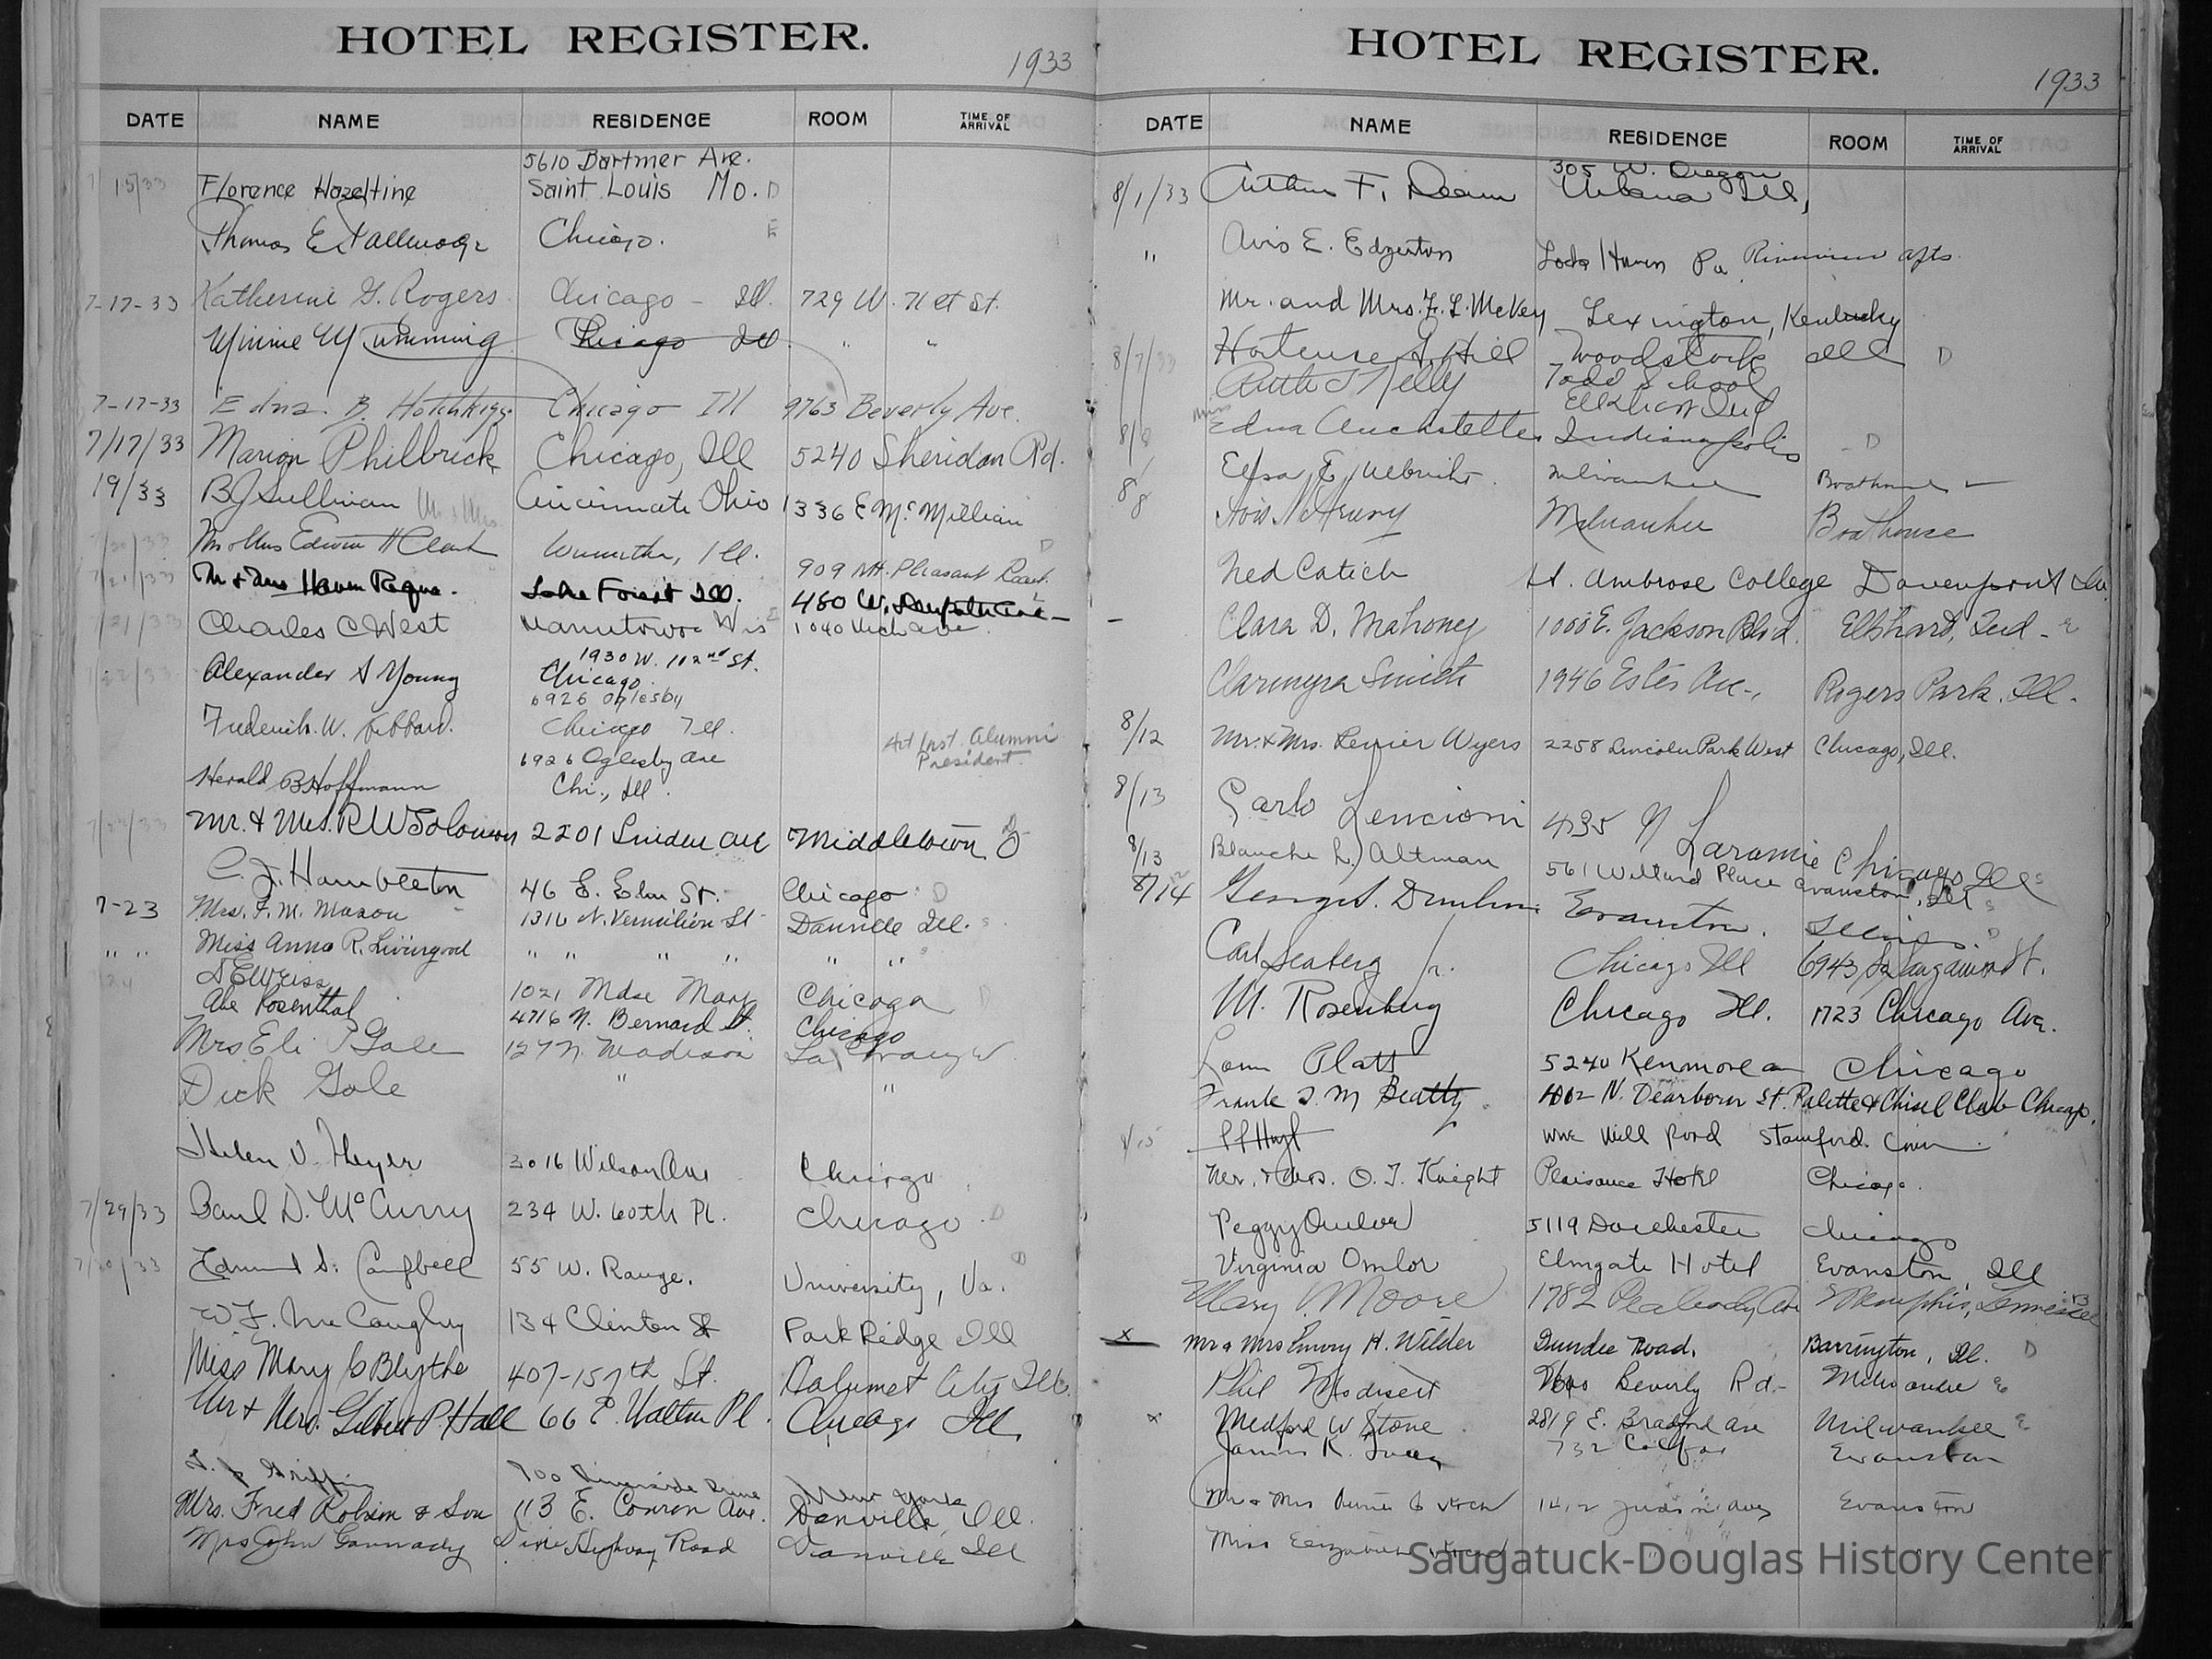 HOTEL REGISTER.
1933
DATE NAME RESIDENCE ROOM TIME OF ARRIVAL
5610 Bartmer Ave.
7/15/33 Florence Hazeltine Saint Louis Mo. D
Thomas E Tallmadge Chicago. E
7-17-33 Katherine G. Rogers Chicago - Ill. 729 W. 71st St.
Minnie Chicago Ill " "
7-17-33 Edna. B. Hotchkiss Chicago Ill 9763 Beverly Ave.
7/17/33 Marion Philbrick Chicago, Ill 5240 Sheridan Rd.
19/33 BJ Sullivan Mr & Mrs Cincinnati Ohio 1336 E McMillian
7/20/33 Mr & Mrs Edwin H Clark Winnetka, Ill. D
909 Mt. Pleasant Road.
7/21/33 Mr & Mrs Lake Forest Ill. 480 W.
7/21/33 Charles C West Manitowoc Wis E 1040 Mich Ave
1930 W. 102nd St.
7/22/33 Alexander S Young Chicago.
6926 Oglesby
Frederick. W. Chicago Ill.
Art Inst. Alumni
President.
6926 Oglesby Ave
Herald B Hoffmann Chi., Ill.
7/23/33 Mr. & Mrs. R W Solomon 2201 Linden Ave Middletown O
C. J. Hambleton 46 E. Elm St. Chicago D
7-23 Mrs. F. M. Mason 1316 N. Vermilion St Danville Ill. s
" " Miss Anna R. Livingood " " " " " "
Weiss
1021 Mdse Mart Chicago D
Abe Rosenthal 4716 N. Bernard St. Chicago
Mrs Eli P Gale 127 N. Madison La Grange
Dick Gale " "
Helen V. Heyer 3016 Wilson Ave Chicago
7/29/33 Paul D. McCurry 234 W. 60th Pl. Chicago D
7/30/33 Edmund S. Campbell 55 W. Range. University, Va. D
W F. McCaughey 134 Clinton St Park Ridge Ill
Miss Mary C Blythe 407-157th St. Calumet City Ill.
Mr & Mrs. Gilbert P. Hall 66 E. Walton Pl. Chicago Ill.
Griffin 700 Riverside Drive New York
Mrs. Fred Robison & Son 113 E. Conron Ave. Danville, Ill.
Mrs John Gannady Dixie Highway Road Danville Ill
HOTEL REGISTER.
1933
DATE NAME RESIDENCE ROOM TIME OF ARRIVAL
305 W. Oregon
8/1/33 Arthur F. Deam Urbana Ill.
" Avis E. Edgerton Lock Haven Pa Riverview Apts.
Mr. and Mrs. F. L. McVey Lexington, Kentucky
8/7/33 Hortense G. Hill Woodstock Ill D
Todd School
Ruth S Kelly Elkhart Ind
8/8 Miss Edna Indianapolis D
8/8 Elsa E. Ulbricht. Milwaukee Boathouse
Milwaukee Boathouse
Ned Catich St. Ambrose College Davenport Ia.
- Clara D. Mahoney 1000 E. Jackson Blvd. Elkhart, Ind - E
Claremyra Smith 1946 Estes Ave., Rogers Park. Ill.
8/12 Mr. & Mrs. Wyers 2258 Lincoln Park West Chicago, Ill.
8/13 Garlo Lencioni 4735 N Laramie Chicago Ill
8/13 Blanche L. Altman 561 Willard Place Evanston, Ill
8/14 George S. Evanston. Illinois. D
Carl Seaberg Jr. Chicago Ill 6943 St.
M. Rosenberg Chicago Ill. 1723 Chicago Ave.
Platt 5240 Kenmore Chicago
Frank S. M Beatty 1012 N. Dearborn St. Palette & Chisel Club Chicago.
8/15 Mill Pond Stamford. Conn
Mr. & Mrs. O. T. Knight Plaisance Hotel Chicago.
Peggy Omlor 5119 Dorchester Chicago
Virginia Omlor Elmgate Hotel Evanston, Ill
Mary Moore 1782 Peabody Ave Memphis, Tennessee
x Mr & Mrs Emory H. Wilder Dundee Road. Barrington, Ill. D
Phil Beverly Rd. Milwaukee E
x Medford W Stone 2819 E. Bradford Ave Milwaukee E
James K. 732 Colfax Evanston
Mr & Mrs 1412 Judson Ave Evanston
Miss Elizabeth
Saugatuck-Douglas History Center